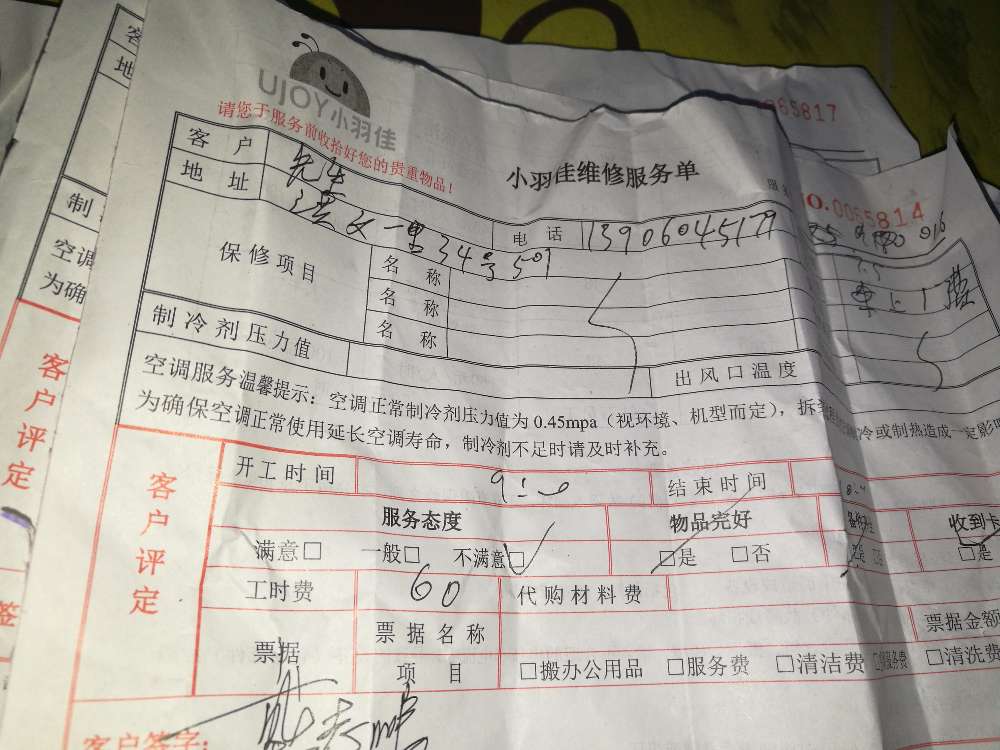 客
地
UJOY小羽佳
0065817
请您于服务前收拾好您的贵重物品!
小羽佳维修服务单
NO.0065814
客 户 先生 电 话 13906045179
地 址 一里34号501
保修项目 名 称
名 称
名 称
制冷剂压力值 出风口温度
制
空调
为确
空调服务温馨提示:空调正常制冷剂压力值为 0.45mpa(视环境、机型而定),拆 冷或制热造成一定影
为确保空调正常使用延长空调寿命,制冷剂不足时请及时补充。
客户评定
客户评定
开工时间 9:00 结束时间
服务态度 物品完好 收到卡
满意□ 一般□ 不满意□ □是 □否 □是
工时费 60 代购材料费
票据 票据名称 票据金额
项 目 □搬办公用品 □服务费 □清洁费 □清洗费
签
客户签字: